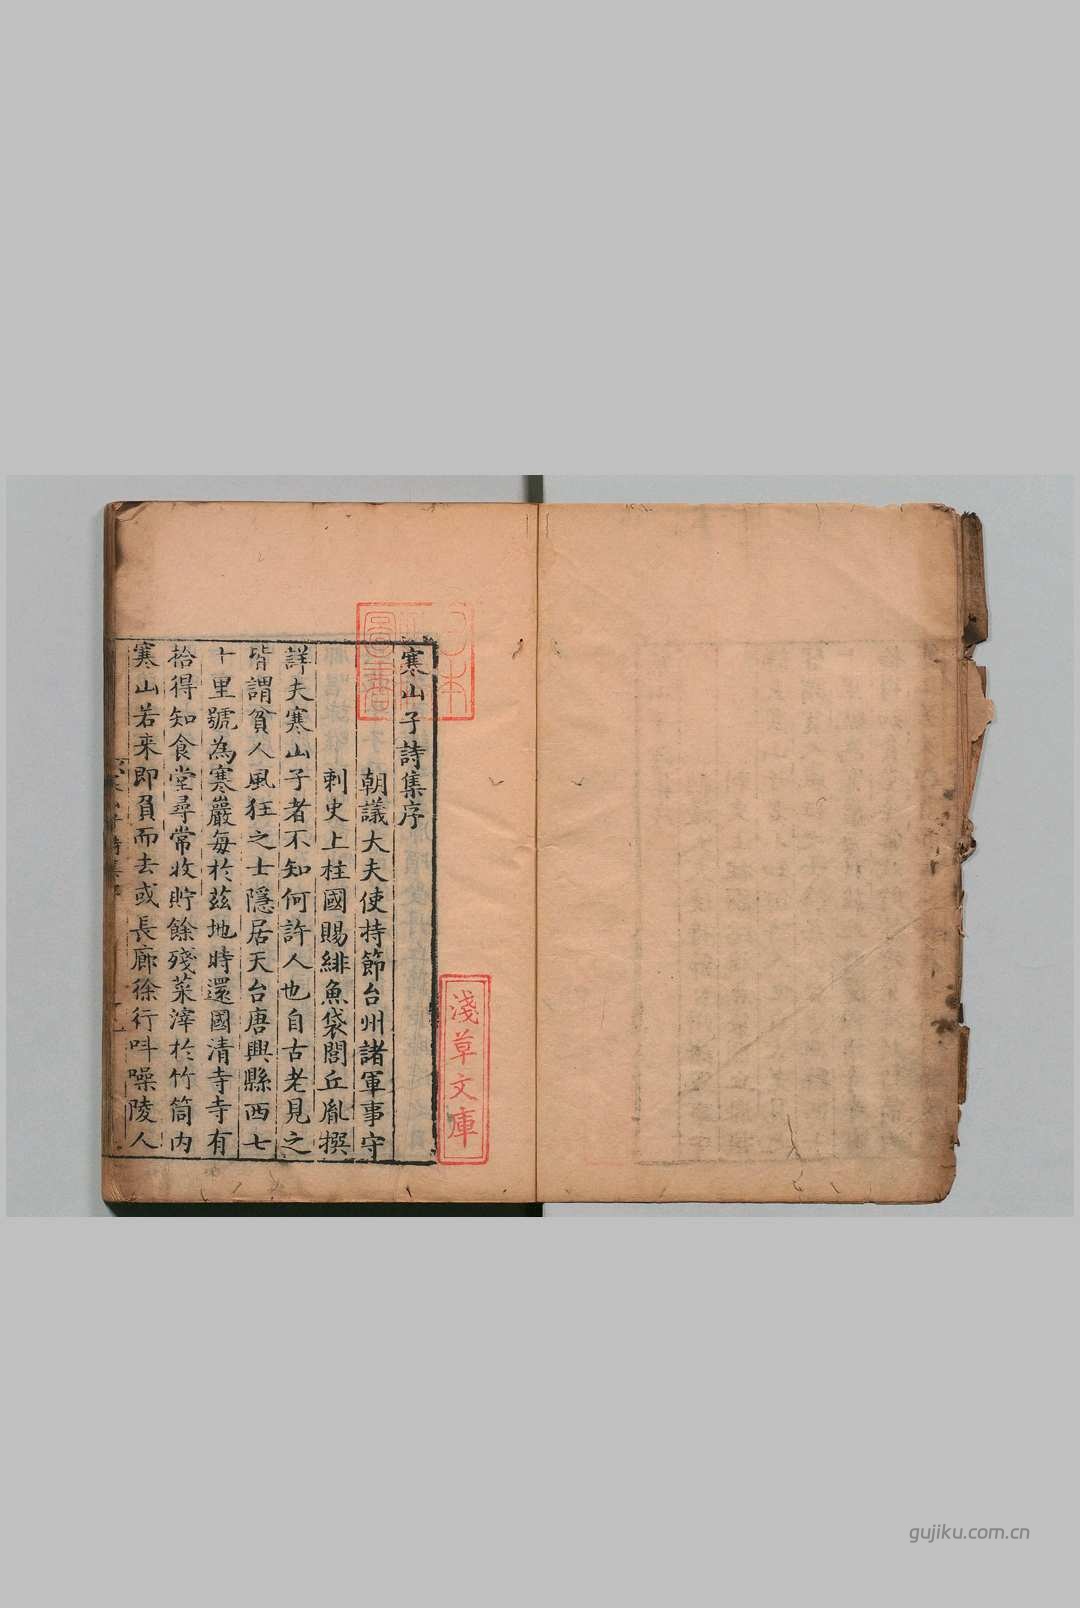 寒山子詩集序
朝議大夫使持節台州諸軍事守
刺史上柱國賜緋魚袋閭丘胤撰
詳夫寒山子者不知何許人也自古老見之
皆謂貧人風狂之士隱居天台唐興縣西七
十里號為寒巖每於茲地時還國清寺寺有
拾得知食堂尋常收貯餘殘菜滓於竹筒內
寒山若來即負而去或長廊徐行呌噪陵人
淺草文庫
gujiku.com.cn